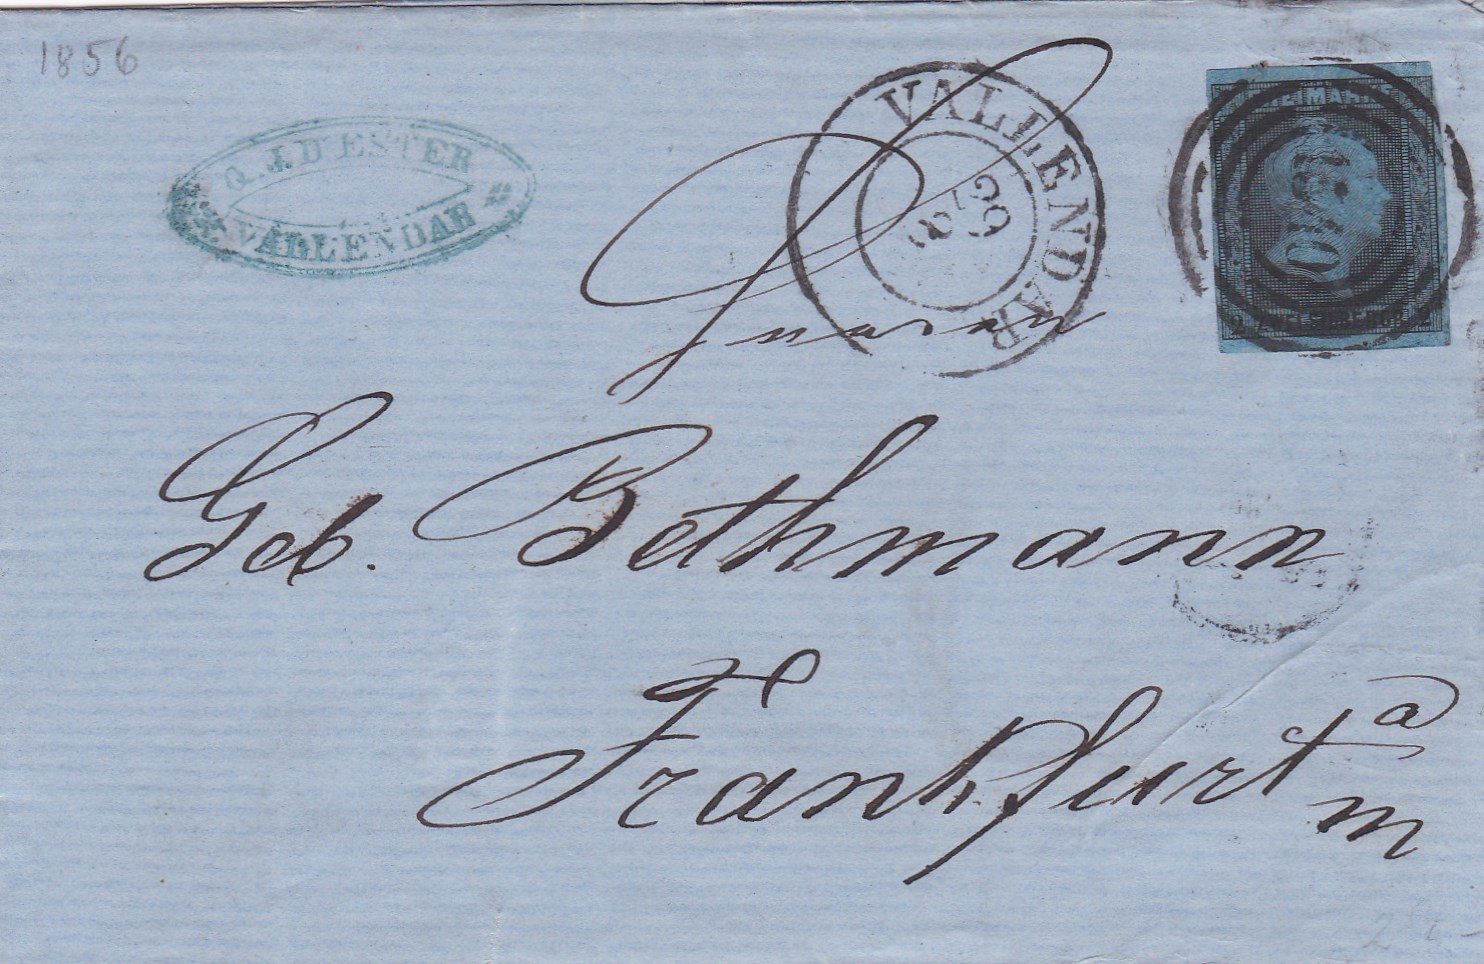 1856
J. D'ESTER
VALLENDAR
VALLENDAR
Herren
Geb. Bethmann
Frankfurt a
m